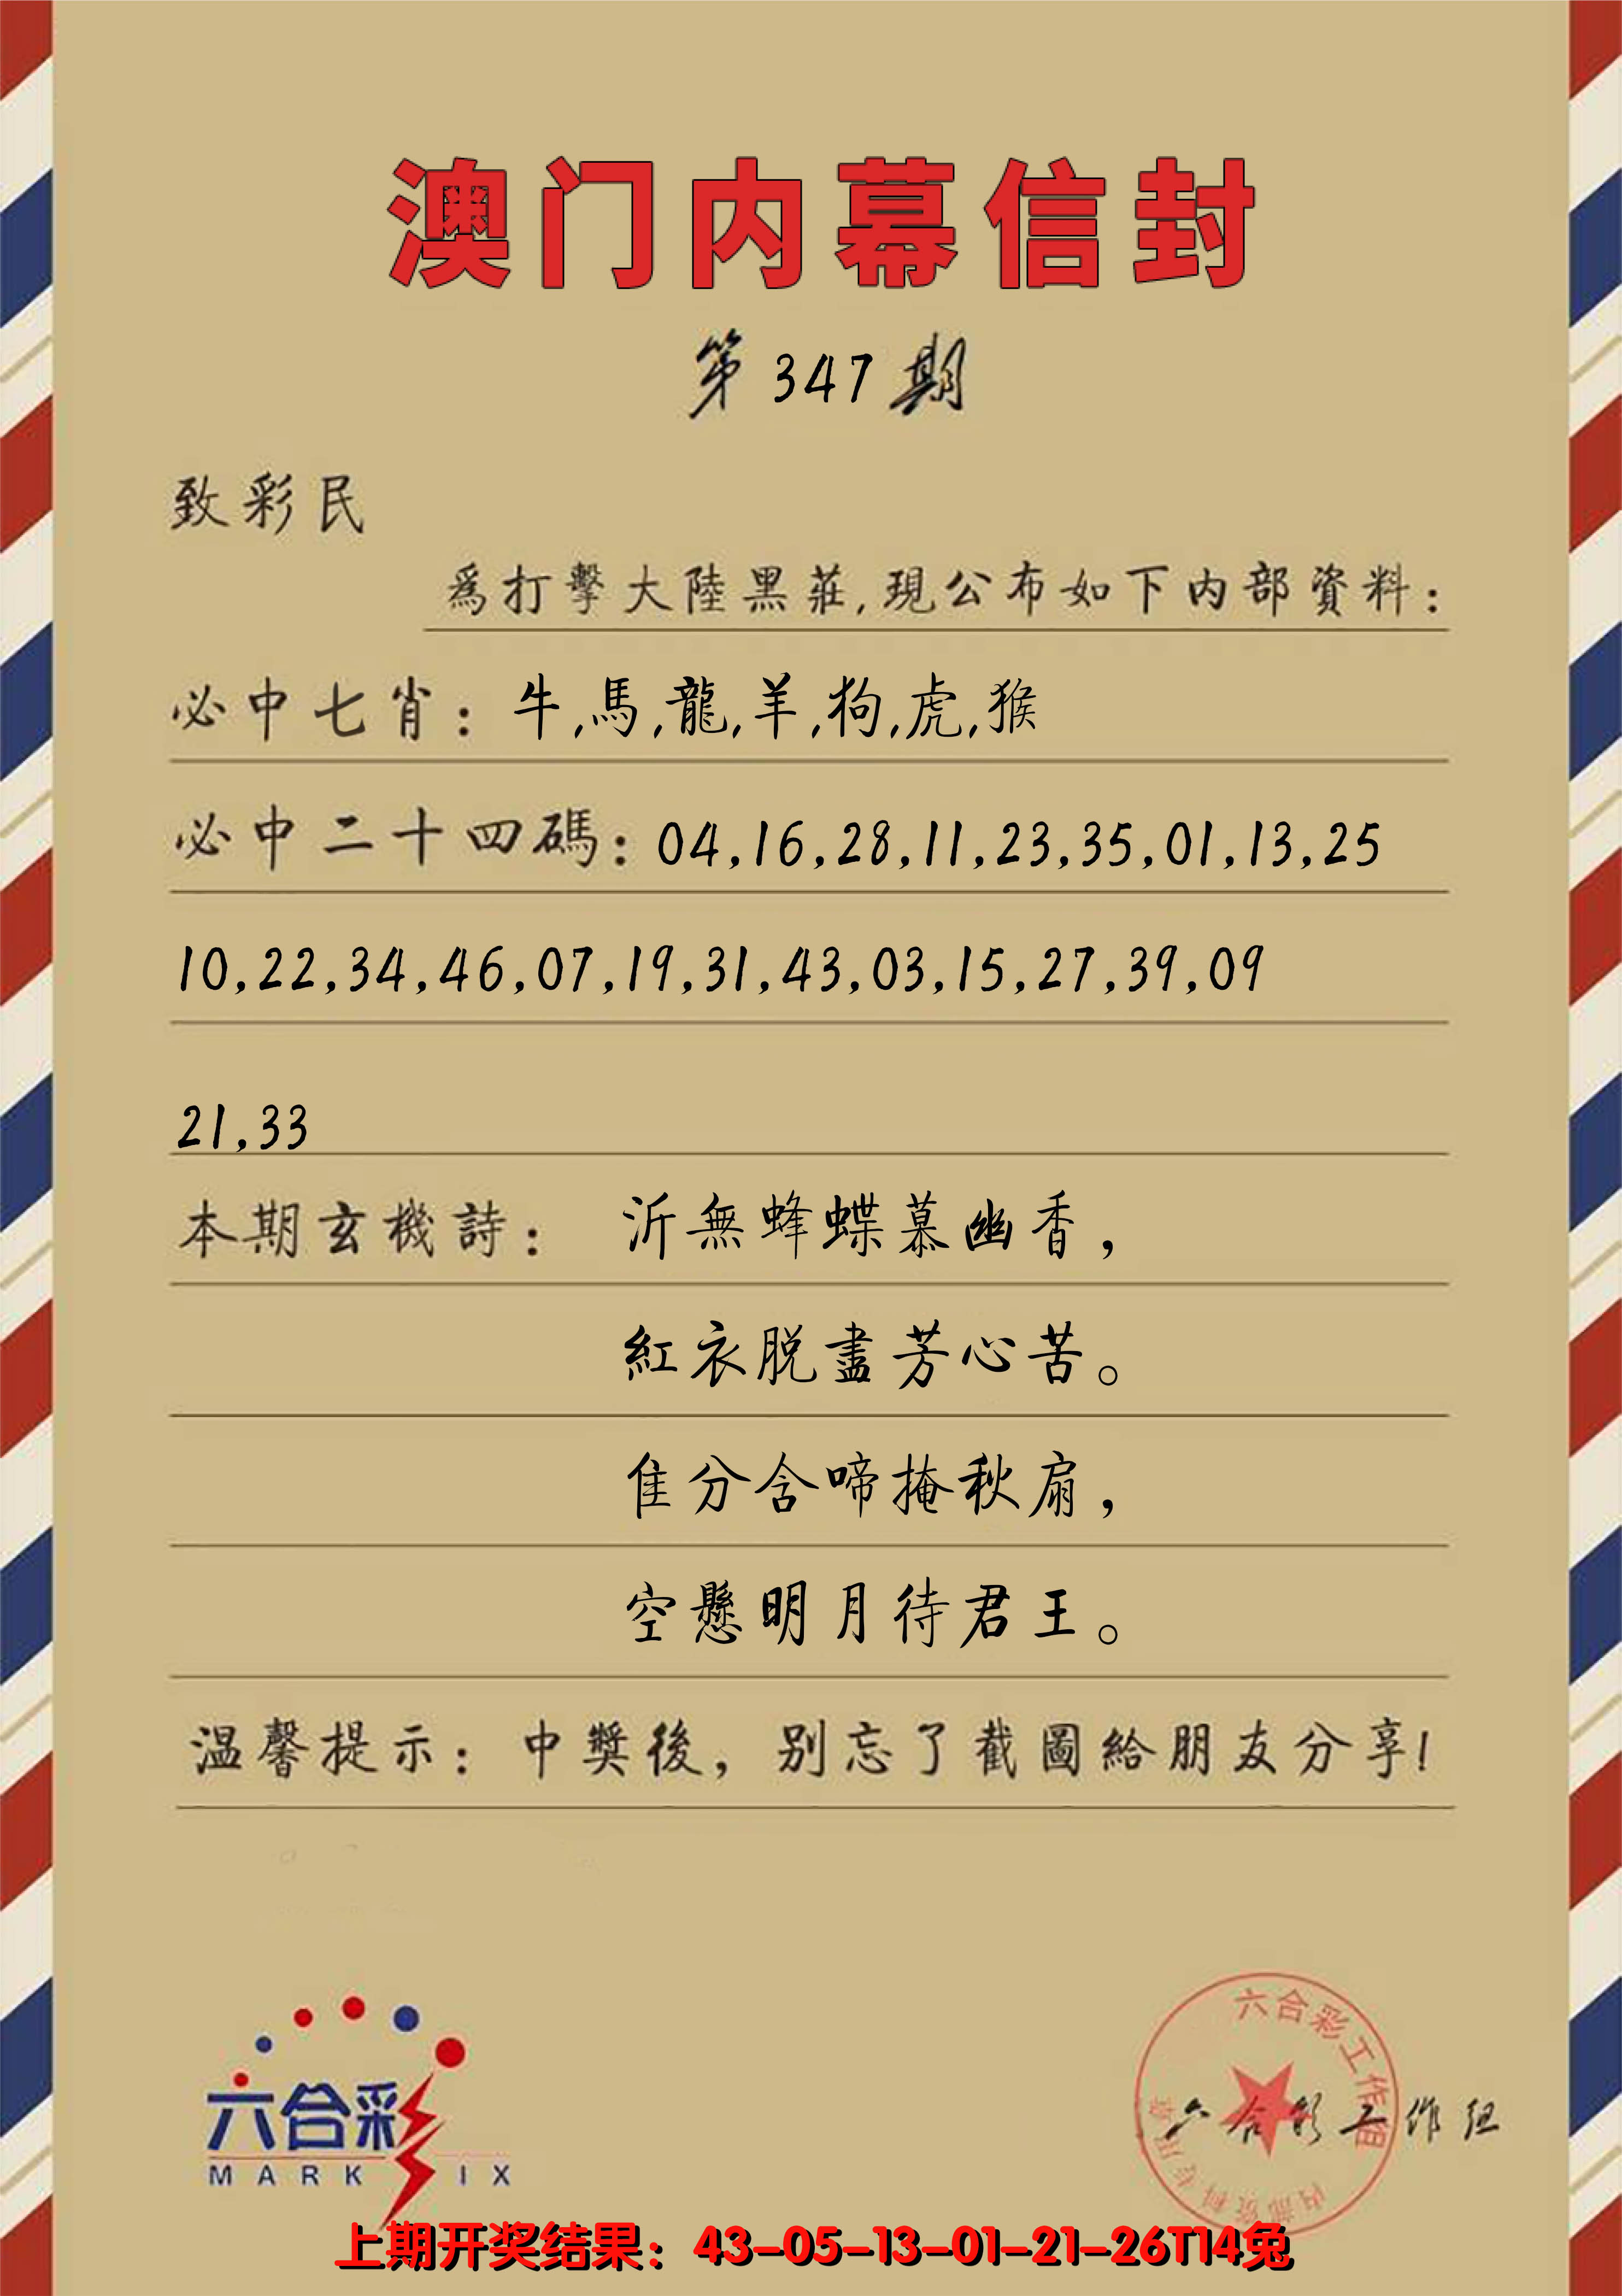 澳门内幕信封
第 347 期
致彩民
為打擊大陸黑莊,現公布如下内部資料:
必中七肖: 牛,馬,龍,羊,狗,虎,猴
必中二十四碼: 04,16,28,11,23,35,01,13,25
10,22,34,46,07,19,31,43,03,15,27,39,09
21,33
本期玄機詩: 沂無蜂蝶慕幽香,
紅衣脱盡芳心苦。
隹分含啼掩秋扇,
空懸明月待君王。
温馨提示: 中獎後, 别忘了截圖給朋友分享!
六合彩工作组
内部资料专用章
六合彩
MARK IX
六合彩工作组
上期开奖结果: 43-05-13-01-21-26T14兔